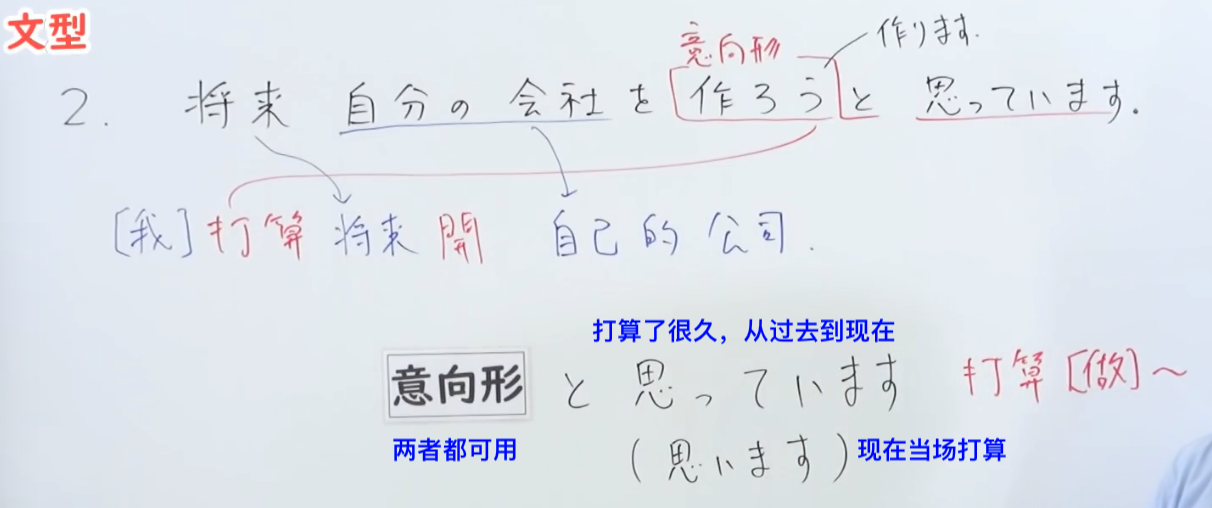 文型
意向形 作ります.
2. 将来 自分の会社を 作ろうと 思っています.
[我]打算 将来 開 自己的 公司.
打算了很久，从过去到现在
意向形 と 思っています 打算[做]～
两者都可用 (思います) 现在当场打算